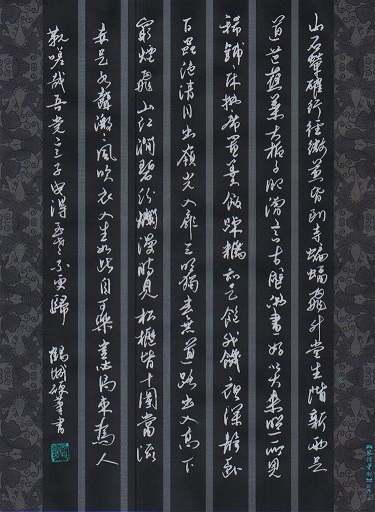 山石犖确行徑微黃昏到寺蝙蝠飛升堂坐階新雨足
芭蕉葉大栀子肥僧言古壁佛畫好以火來照所見
稀鋪床拂席置羹飯疏糲亦足飽我饑夜深靜臥
百蟲絕清月出嶺光入扉天明獨去無道路出入高下
窮煙霏山紅澗碧紛爛漫時見松櫪皆十圍當流
聲激激風吹衣人生如此自可樂豈必局束為人
鞿嗟哉吾黨二三子安得至老不更歸 鶴城硬筆書